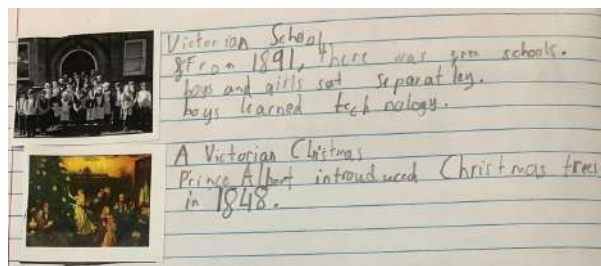 Victorian School
From 1891, there was schools.
boys and girls sat separatley.
boys learned technology.
A Victorian Christmas
Prince Albert introuduced Christmas trees
in 1848.